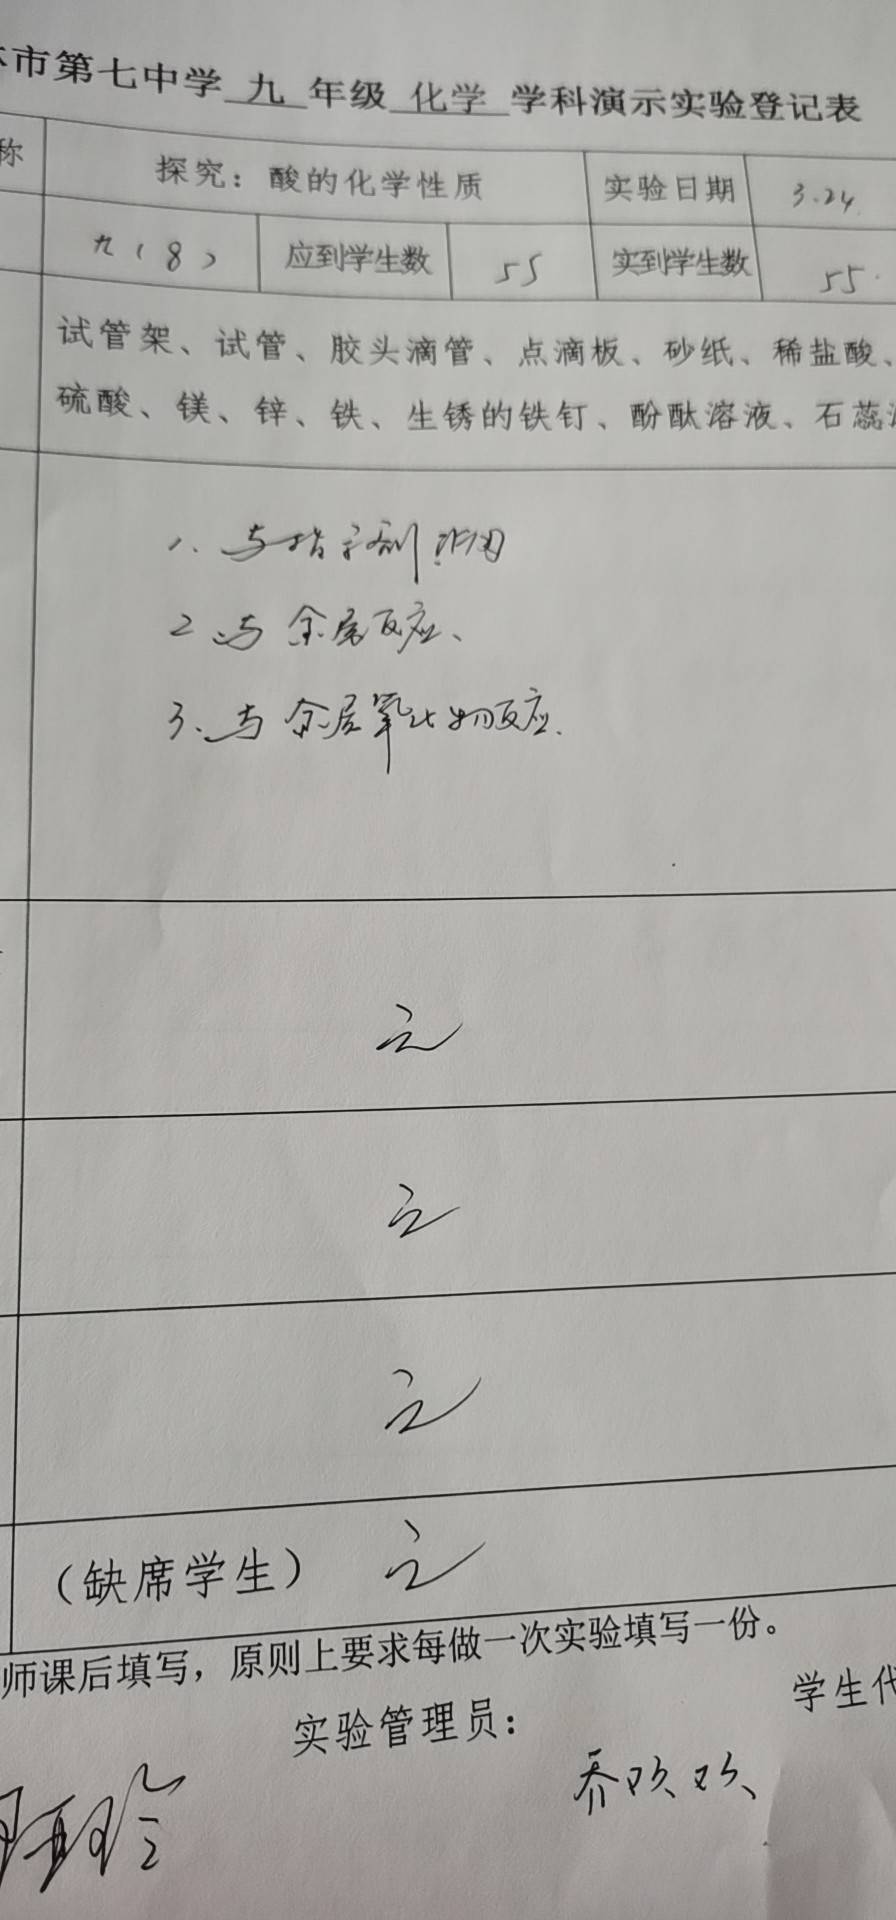 市第七中学 九 年级 化学 学科演示实验登记表
称 探究：酸的化学性质 实验日期 3.24.
九（8） 应到学生数 55 实到学生数 55.
试管架、试管、胶头滴管、点滴板、砂纸、稀盐酸、
硫酸、镁、锌、铁、生锈的铁钉、酚酞溶液、石蕊
1、与指示剂作用
2、与金属反应、
3、与金属氧化物反应.
无
无
无
（缺席学生） 无
师课后填写，原则上要求每做一次实验填写一份。
实验管理员： 学生代
乔欢欢